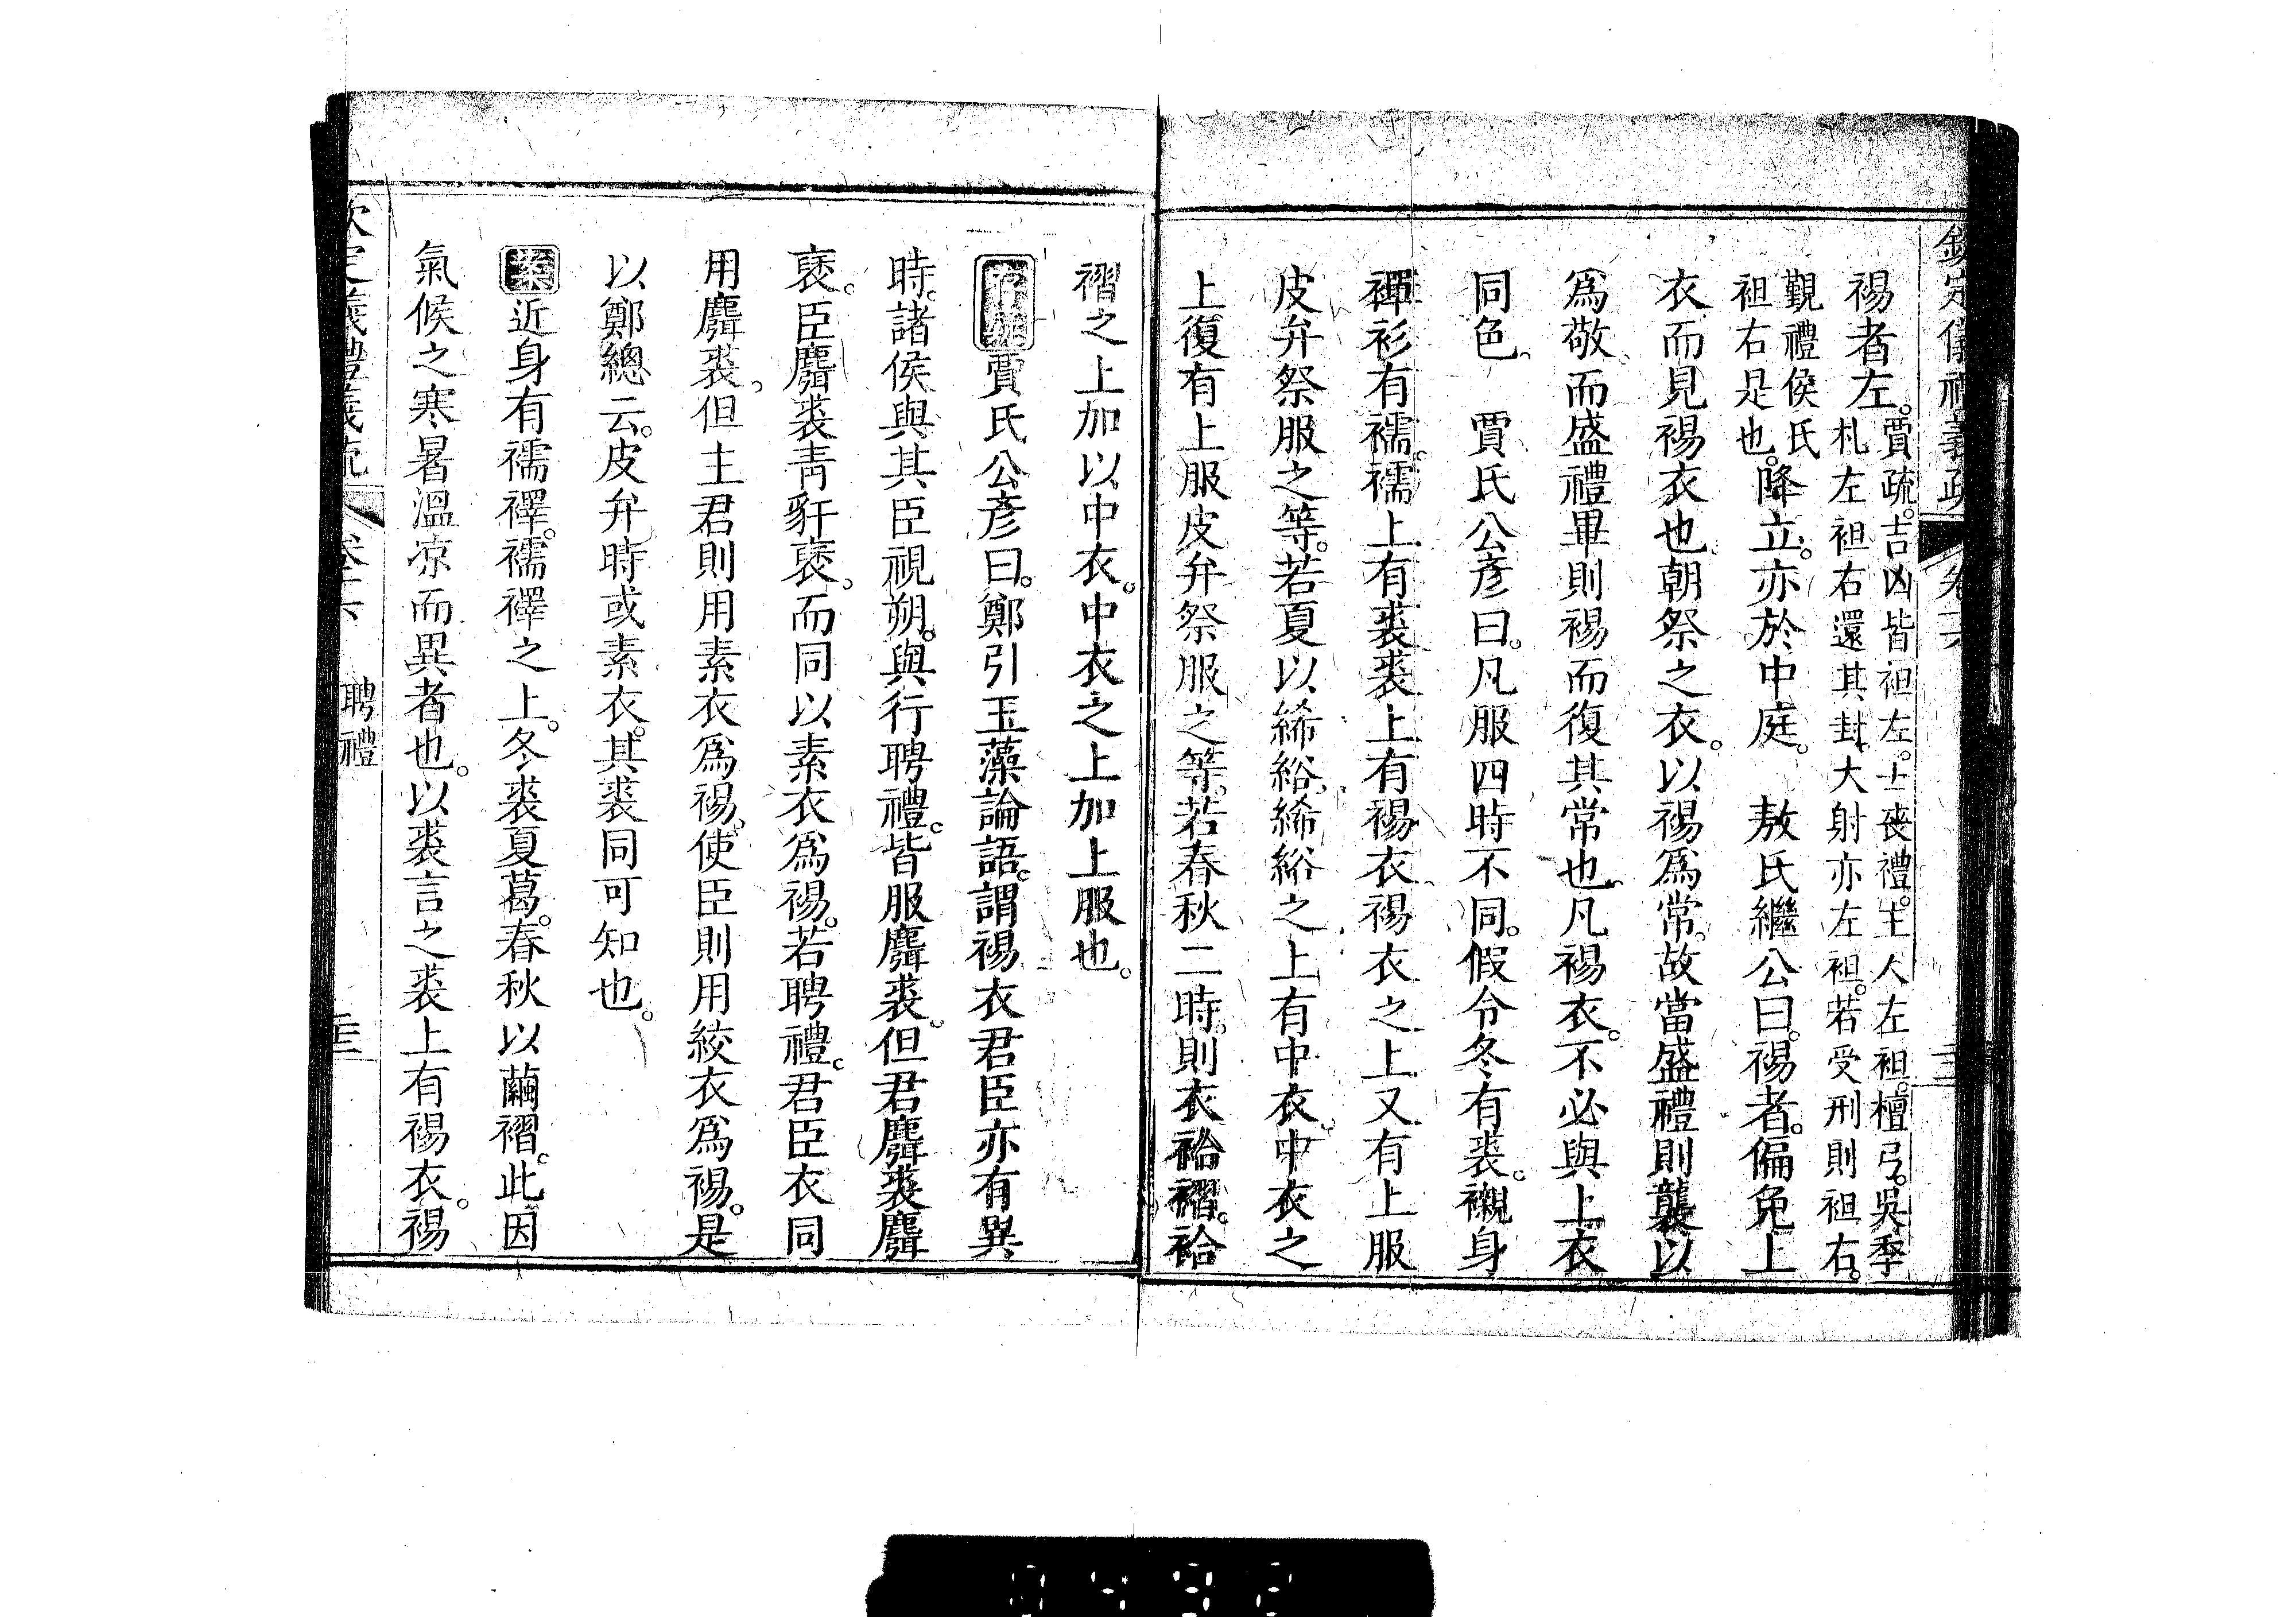 欽定儀禮義疏
裼者左。賈疏。吉凶皆袒左。士喪禮。主人左袒。檀弓。吳季
札左袒右還其封。大射亦左袒。若受刑則袒右。
覲禮侯氏
袒右是也。降立。亦於中庭。　敖氏繼公曰。裼者。偏免上
衣而見裼衣也。朝祭之衣。以裼爲常。故當盛禮則襲以
爲敬。而盛禮畢則裼而復其常也。凡裼衣。不必與上衣
同色。　賈氏公彥曰。凡服四時不同。假令冬有裘。襯身
襌衫有襦。襦上有裘。裘上有裼衣。裼衣之上又有上服
皮弁祭服之等。若夏以絺綌。絺綌之上有中衣。中衣之
上復有上服皮弁祭服之等。若春秋二時。則衣袷褶。袷
褶之上加以中衣。中衣之上加上服也。
賈氏公彥曰。鄭引玉藻論語。謂裼衣君臣亦有異
時。諸侯與其臣視朔。與行聘禮。皆服麛裘。但君麛裘麛
褎。臣麛裘青豻褎。而同以素衣爲裼。若聘禮。君臣衣同
用麛裘。但主君則用素衣爲裼。使臣則用絞衣爲裼。是
以鄭總云。皮弁時或素衣。其裘同可知也。
案近身有襦襗。襦襗之上。冬裘夏葛。春秋以繭褶。此因
氣候之寒暑溫凉而異者也。以裘言之。裘上有裼衣。裼
聘禮